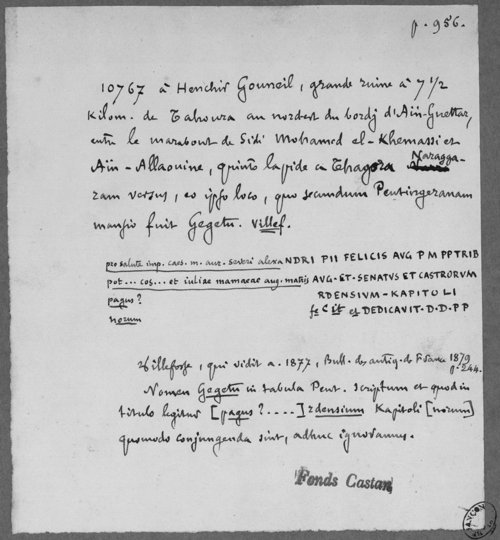 p. 956.
10767 à Henchir Gouneïl, grande ruine à 7 1/2
Kilom. de Tahoura au nordest du bordj d'Aïn-Guettar,
entre le marabout de Sidi Mohamed el-Khemassi et
Aïn-Allaouine, quinto lapide a Thagora Naragga-
ram versus, eo ipso loco, quo secundum Peutingeranam
mansio fuit Gegetu. Villef.
pro salute imp. caes. m. aur. severi alexaNDRI PII FELICIS AVG P M PPTRIB
pot... cos... et iuliae mamaeae aug. matris AVG·ET·SENATVS ET CASTRORVM
pagus? RDENSIVM-KAPITOLI
norum feCit et DEDICAVIT·D·D·PP
Villefosse, qui vidit a. 1877, Bull. des antiq. de France 1879
p. 244.
Nomen Gegetu in tabula Peut. scriptum et quod in
titulo legitur [pagus?....]rdensium Kapitoli[norum]
quomodo conjungenda sint, adhuc ignoramus.
Fonds Castan